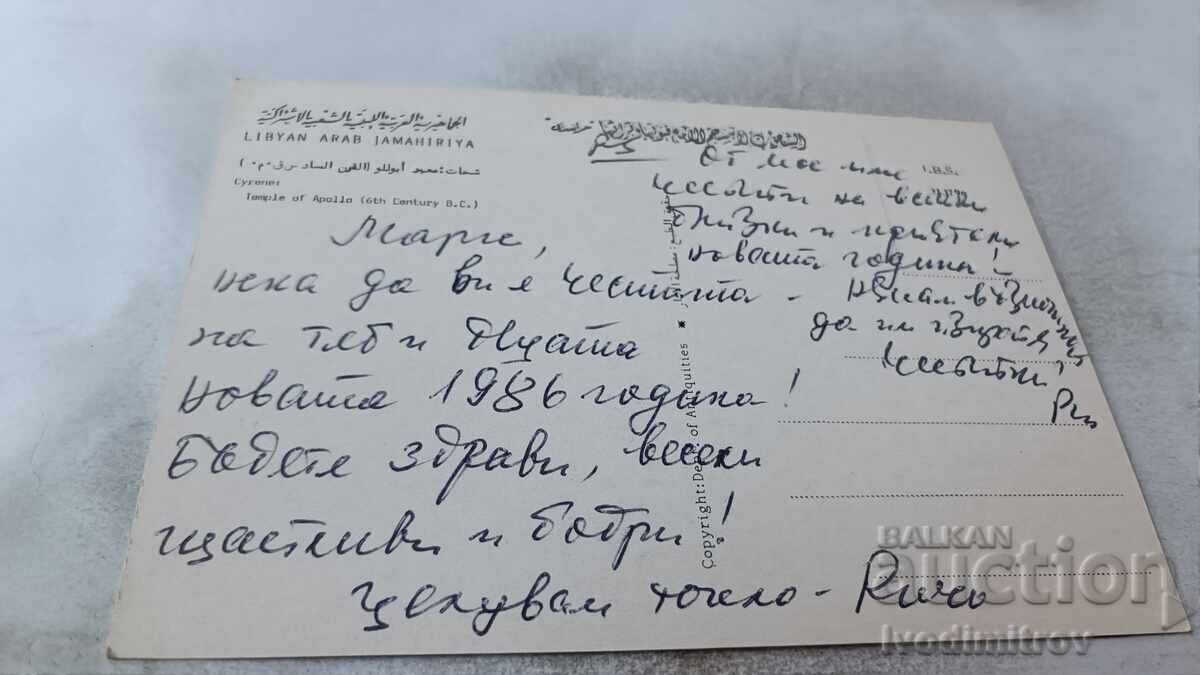 الجماهيرية العربية الليبية الشعبية الاشتراكية
LIBYAN ARAB JAMAHIRIYA
شحات: معبد أبوللو (القرن السادس ق.م.)
Cyrene:
Temple of Apollo (6th Century B.C.)
Марге,
нека да ви е честита
на теб и Пуцата
новата 1986 година!
Бъдете здрави, весели
щастливи и бодри!
Целувам топло - Ричо
P.S.
от мое име
честити на всички
близки и приятели
новата година!
да им
честити!
I.B.S.
Copyright: Dept. of Antiquities *
BALKAN
auction
Ivodimitrov